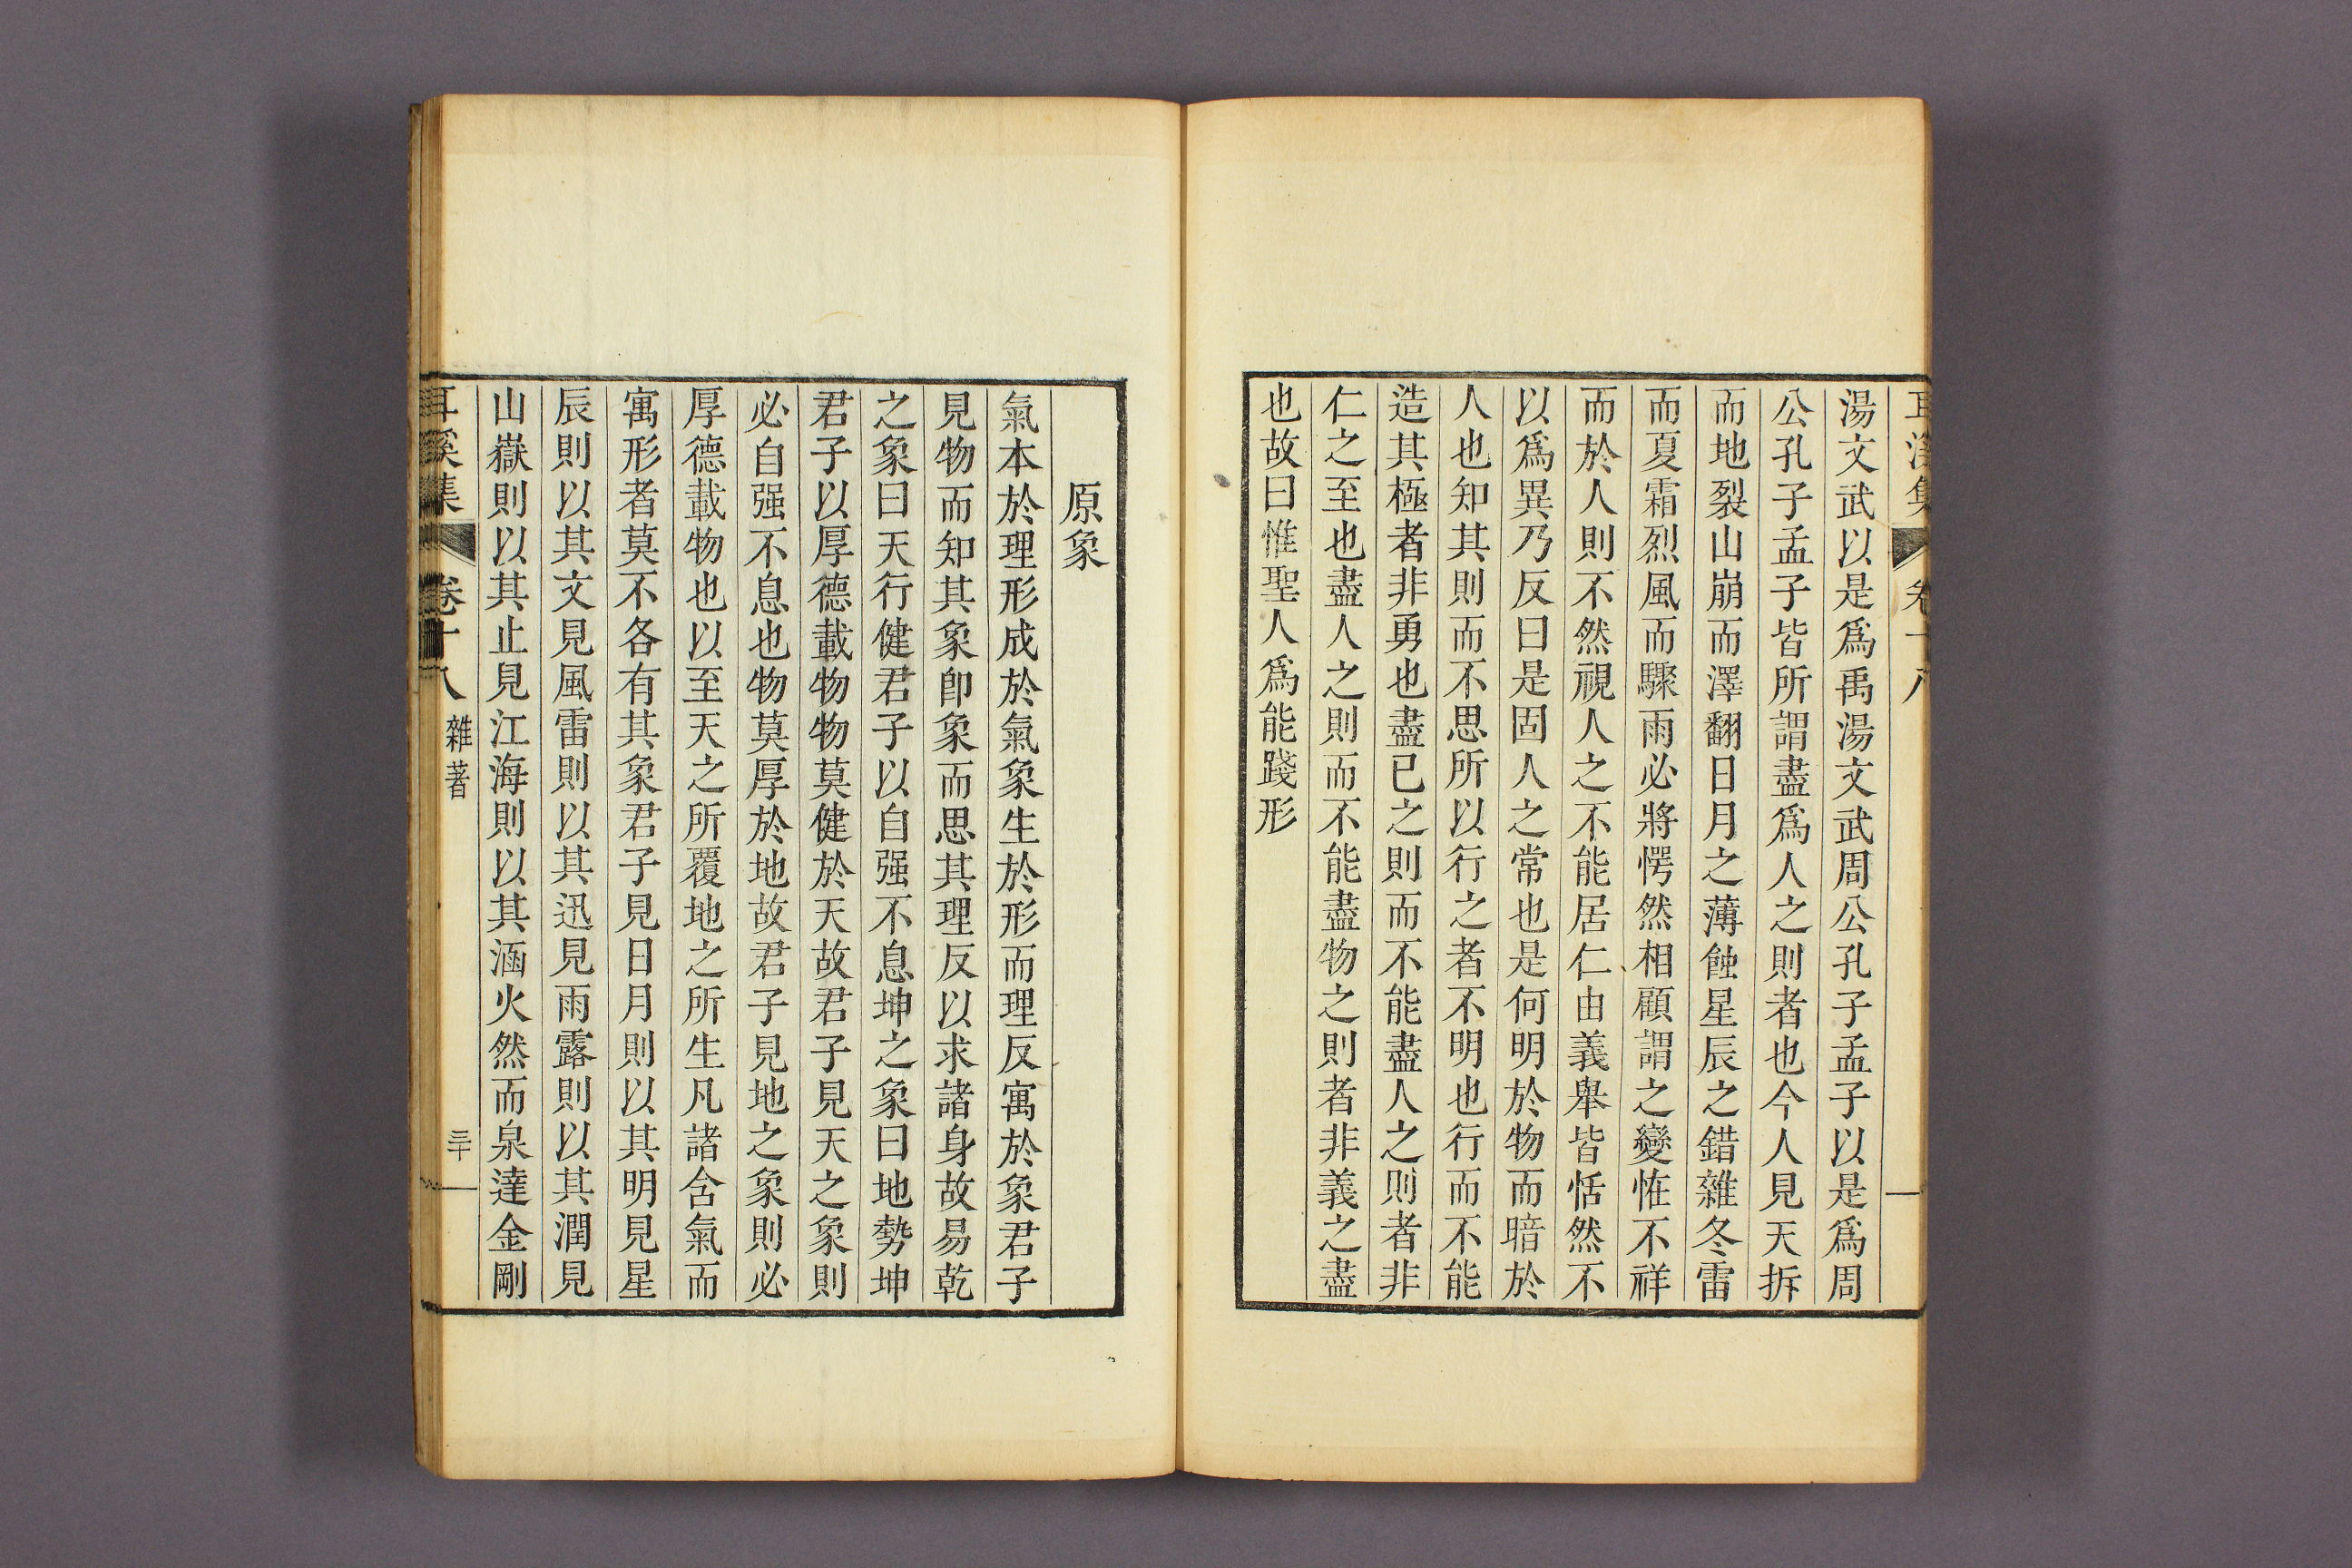 湯文武以是爲禹湯文武周公孔子孟子以是爲周
公孔子孟子皆所謂盡爲人之則者也今人見天拆
而地裂山崩而澤翻日月之薄蝕星辰之錯雜冬雷
而夏霜烈風而驟雨必將愕然相顧謂之變恠不祥
而於人則不然視人之不能居仁由義舉皆恬然不
以爲異乃反曰是固人之常也是何明於物而暗於
人也知其則而不思所以行之者不明也行而不能
造其極者非勇也盡已之則而不能盡人之則者非
仁之至也盡人之則而不能盡物之則者非義之盡
也故曰惟聖人爲能踐形
原象
氣本於理形成於氣象生於形而理反寓於象君子
見物而知其象卽象而思其理反以求諸身故易乾
之象曰天行健君子以自强不息坤之象曰地勢坤
君子以厚德載物物莫健於天故君子見天之象則
必自强不息也物莫厚於地故君子見地之象則必
厚德載物也以至天之所覆地之所生凡諸含氣而
寓形者莫不各有其象君子見日月則以其明見星
辰則以其文見風雷則以其迅見雨露則以其潤見
山嶽則以其止見江海則以其涵火然而泉達金剛
耳溪集 卷十八 雜著 三十